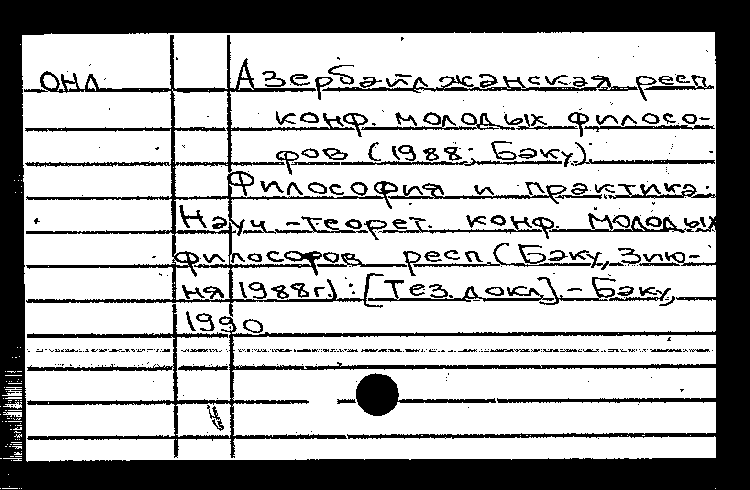 ОНЛ Азербайджанская респ.
конф. молодых филосо-
фов (1988; Баку).
Философия и практика:
Науч.-теорет. конф. молодых
философов респ. (Баку, 3 ию-
ня 1988г.): [Тез. докл.] - Баку,
1990